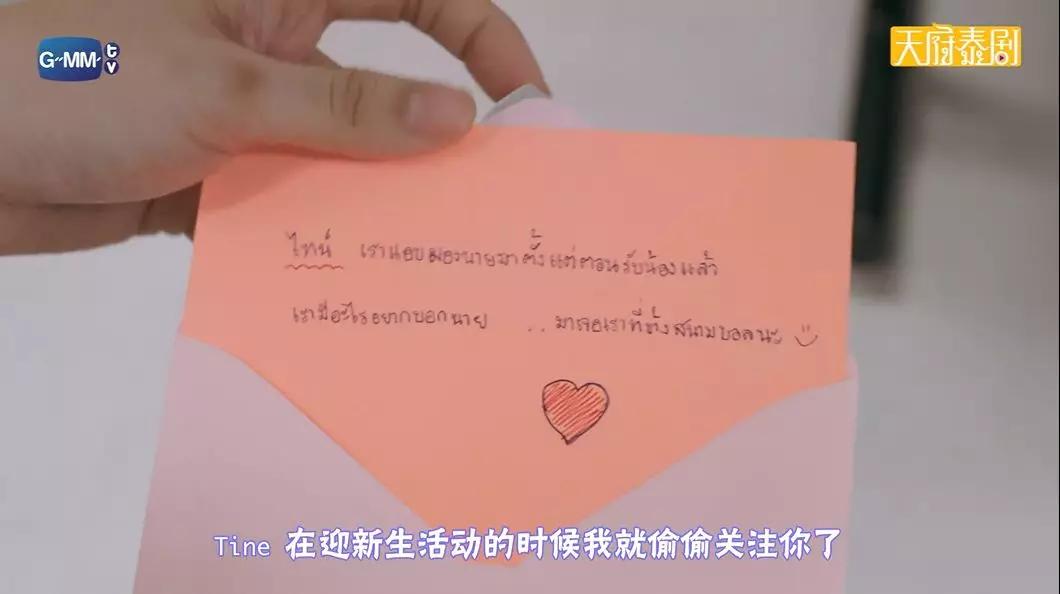 GMM tv
天府泰剧
ไทน์ เราแอบมองนายมาตั้งแต่ตอนรับน้องแล้ว
เรามีอะไรอยากบอกนาย .. มาเจอเราที่ข้างสนามบอลนะ
Tine 在迎新生活动的时候我就偷偷关注你了